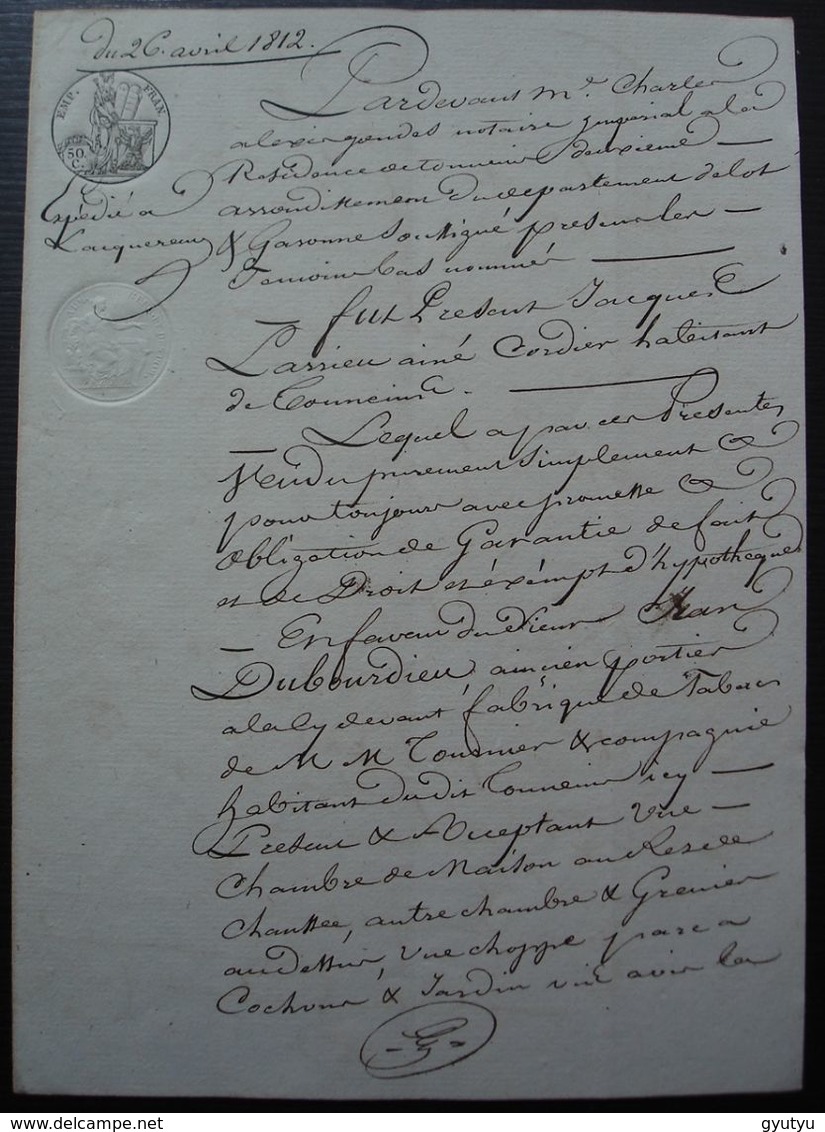 du 26. avril 1812.
EMP. FRAN.
50
C.
Pardevant Me. Charles
alexis gendes notaire Imperial a la
Residence de tonneins deuxieme —
arrondissement du departement de lot
Expédié a
Lacquereur
& Garonne Soussigné presens les —
Temoins bas nommés —
— fut Present Jacques
Larrieu ainé Cordier habitant
de Tonneins. —
— Lequel a par ces Presentes
Vendu purement simplement &
pour toujours avec promesse &
obligation de Garantie de fait
et de Droit et éxémpt d'hypotheques
— En faveur du Sieur Jean
Dubourdieu, aincien portier
a la Cy devant fabrique de Tabacs
de M M Tounnier & compagnie
habitant du dit Tonneins icy —
Présent & Acceptant Une —
Chambre de Maison au Resdé
Chaussée, autre chambre & Grenier
au dessus, Une choppe parc a
Cochons & Jardin vis avis la